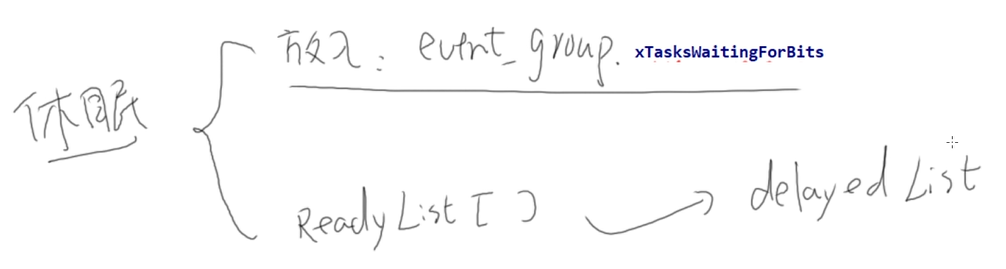 放入: event_group. xTasksWaitingForBits
休眠
ReadyList [ ] delayed List